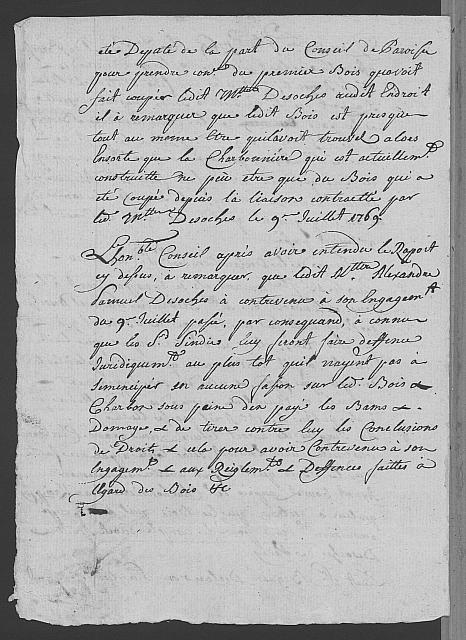 eté Deputé de la part du Conseil de Paroisse
pour prendre con.ᵉ du premier Bois quavoit
fait couper ledit Mᵗʳᵉ Desoches audit Endroit
il à remarquer que ledit Bois est presque
tout au mome Etre quilavoit trouvé alors
Ensorte que la Charbonniere qui est actuellem.ᵗ
construitte ne peu etre que du Bois qui a
eté Coupée depuis la liaison contractée par
led. Mᵗʳᵉ Desoches le 9.ᵉ Juillet 1769
Lhon.ᵇˡᵉ Conseil après avoir entendu le Raport
cy dessus, à remarquer, que ledit Mᵗʳᵉ Alexandre
Samuel Desoches à contrevenu à son Engagem.ᵗ
du 9.ᵉ Juillet passé, par consequand, à connu
que les S.ʳ Sindic luy feront faire deffence
Juridiquem.ᵗ au plus tot quil nayent pas à
semenciper en aucun fason sur led. Bois &
Charbon sous paine den payé les Bams &
Domage, & de tirer contre luy les Conclusions
de Droit, & cela pour avoir Contrevenu à son
Engagem.ᵗ & aux Reiglem.ᵗˢ & Deffences faittes à
Egard des Bois &c